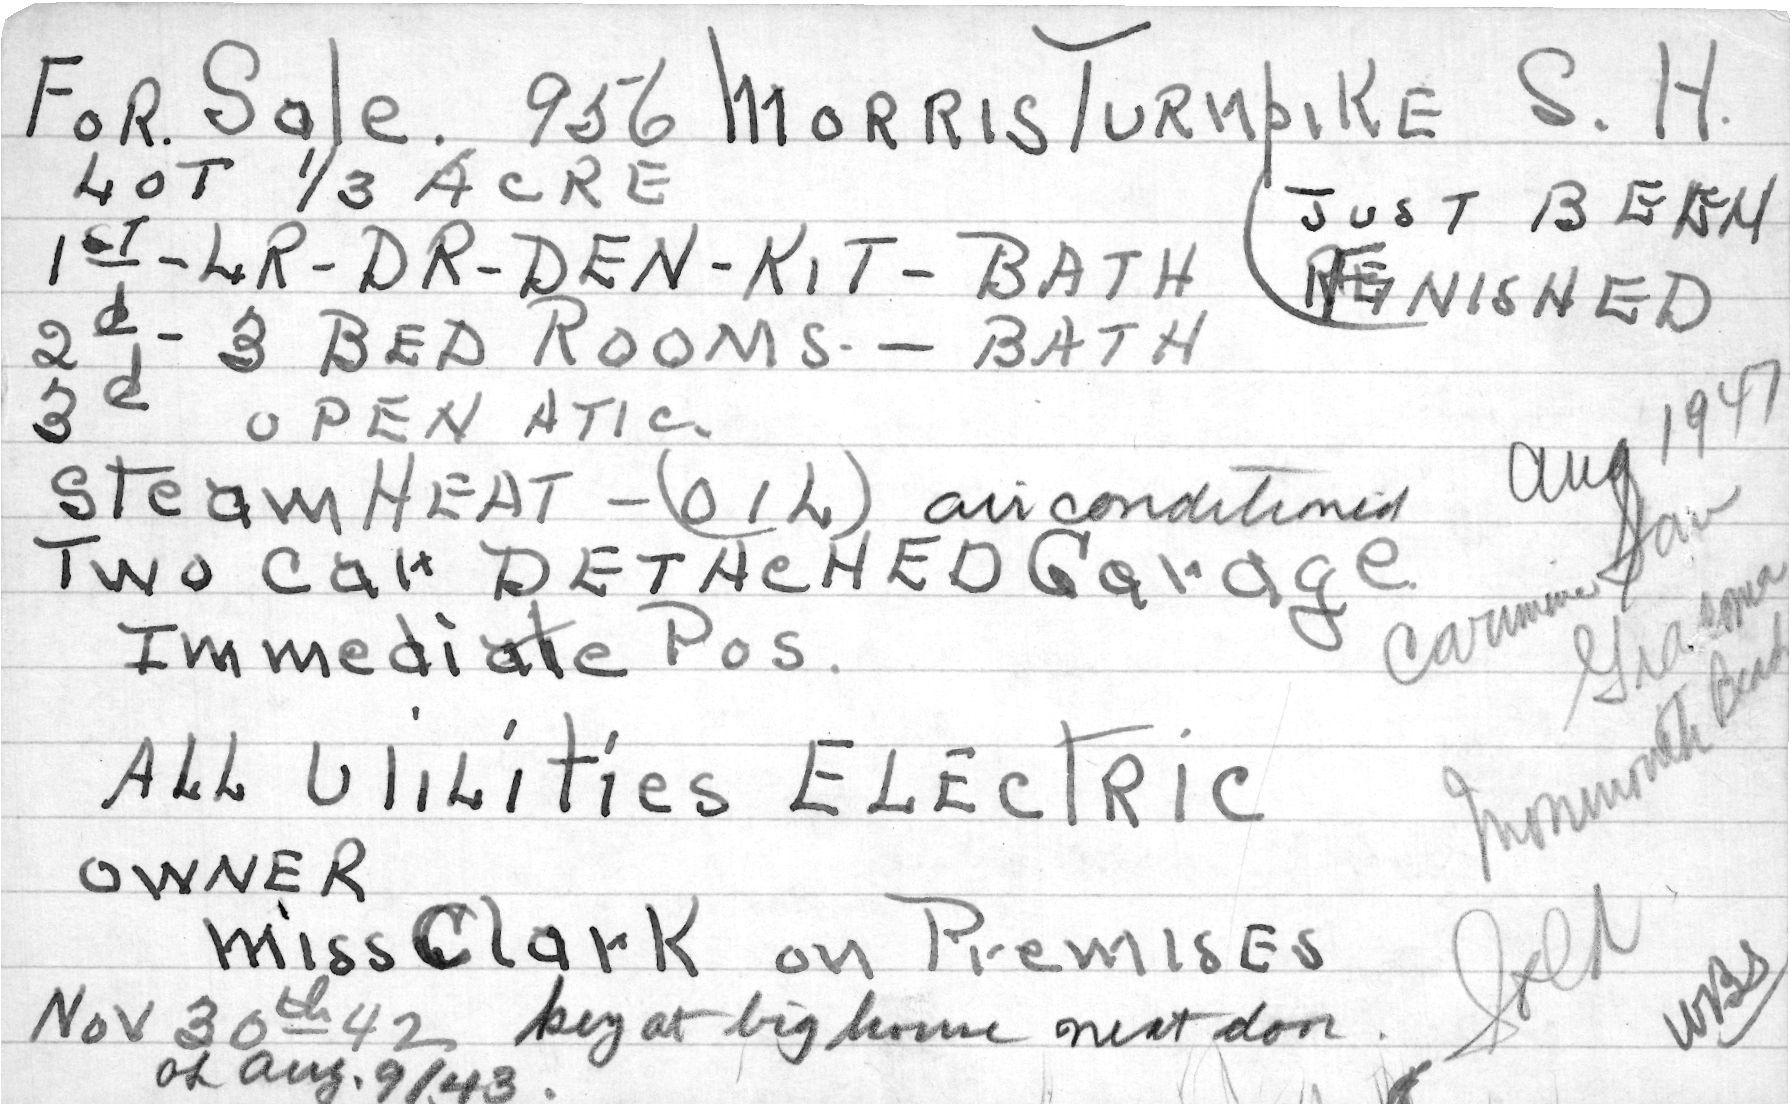 FOR. Sale. 956 MORRIS TURNPIKE S. H.
LOT 1/3 ACRE
JUST BEEN
REFINISHED
1ST - LR - DR - DEN - KIT - BATH
2d - 3 BED ROOMS. - BATH
3d OPEN ATIC.
Steam HEAT - (OIL) air conditioned
Two Car DETACHED Garage.
Immediate Pos.
ALL Utilities ELEctRic
OWNER
Miss Clark on PremisEs
Nov 30th 42 key at big house next door.
Aug. 9/43.
Aug 1947
Carmine
Monmouth Beach
Sold
WBS